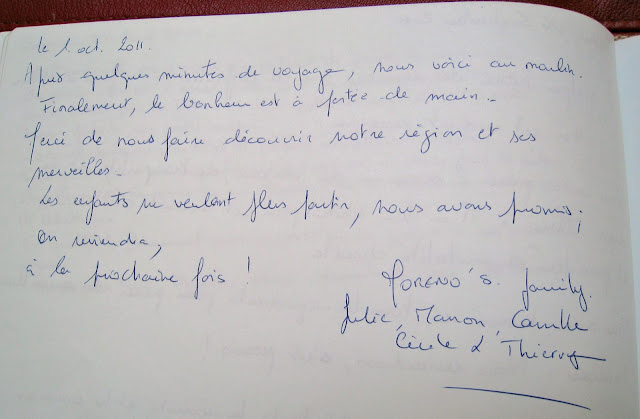 le 1 oct. 2011.
Après quelques minutes de voyage, nous voici au moulin.
Finalement, le bonheur est à portée de main.
Merci de nous faire découvrir notre région et ses
merveilles.
Les enfants ne veulent plus partir, nous avons promis ;
on reviendra,
à la prochaine fois !
MORENO'S family.
Julie, Manon, Camille
Cécile & Thierry